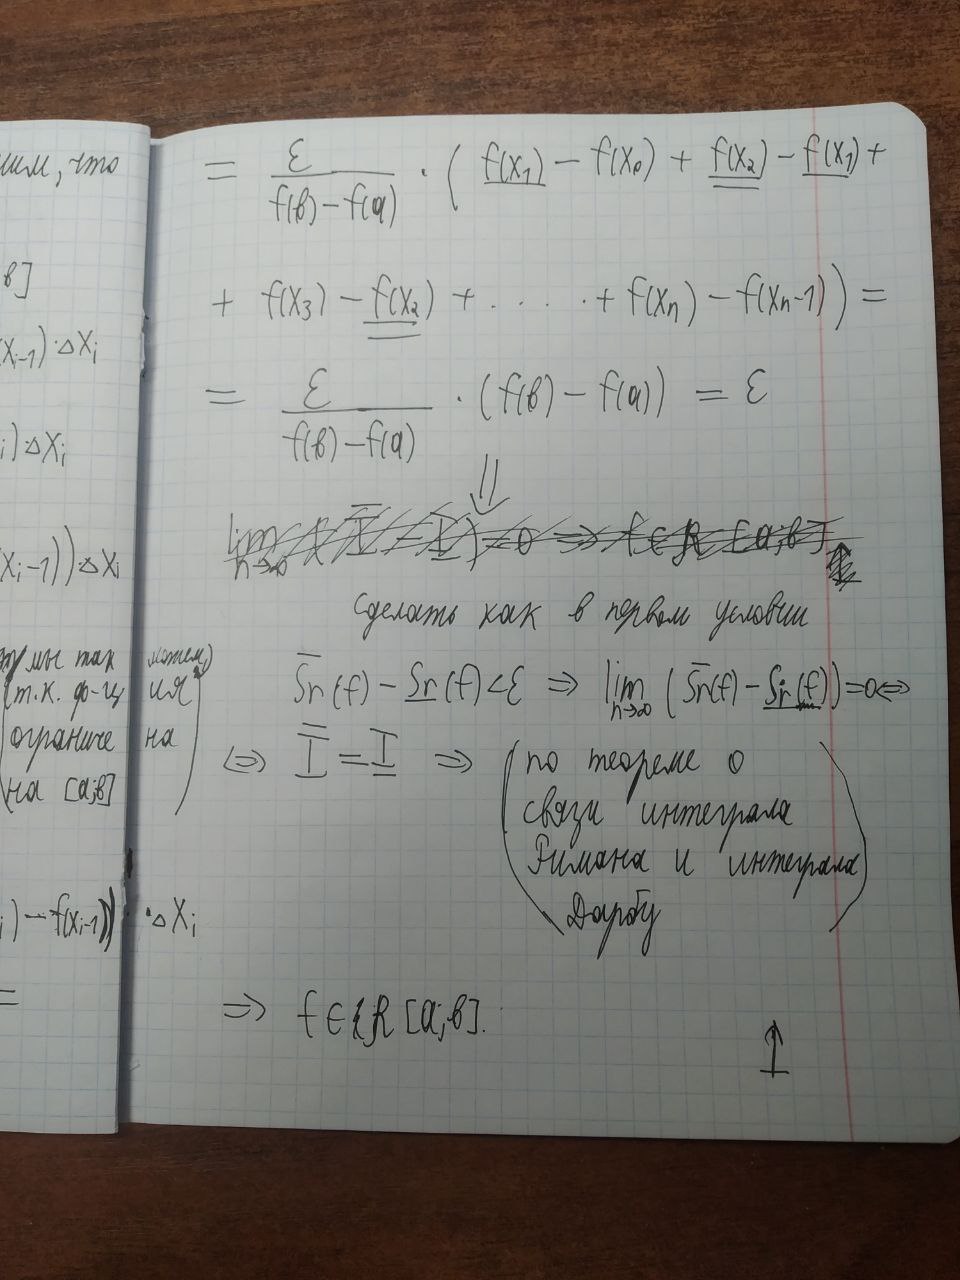 шим, что
в]
(x_{i-1})·Δx_i
_i)Δx_i
(x_{i-1}))Δx_i
мы так можем,
(т.к. ф-ция
ограничена
на [a;в])
_i) − f(x_{i-1}))·Δx_i
=
= ε/(f(в) − f(a)) · (f(x₁) − f(x₀) + f(x₂) − f(x₁) +
+ f(x₃) − f(x₂) + . . . . . + f(xₙ) − f(xₙ₋₁)) =
= ε/(f(в) − f(a)) · (f(в) − f(a)) = ε
⇓
lim_{n→∞} (Ī − I̲) = 0 ⇒ f ∈ R [a;в]
сделать как в первом условии
S̄τ(f) − S̲τ(f) < ε ⇒ lim_{n→∞} (S̄τ(f) − S̲τ(f)) = 0 ⇔
⇔ Ī = I̲ ⇒ (по теореме о
связи интеграла
Римана и интеграла
Дарбу)
⇒ f ∈ R [a;в].
↑